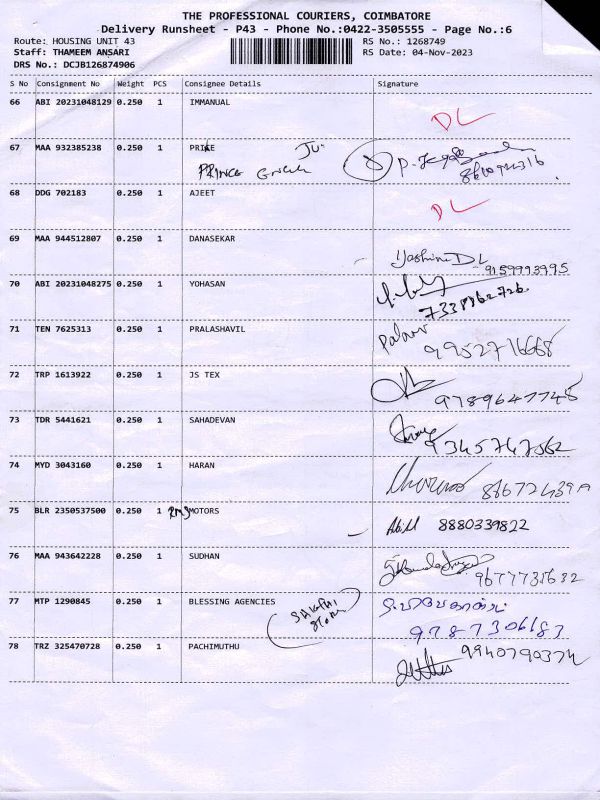 THE PROFESSIONAL COURIERS, COIMBATORE
Delivery Runsheet - P43 - Phone No.:0422-3505555 - Page No.:6
Route: HOUSING UNIT 43 RS No.: 1268749
Staff: THAMEEM ANSARI RS Date: 04-Nov-2023
DRS No.: DCJB126874906
S No Consignment No Weight PCS Consignee Details Signature
66 ABI 20231048129 0.250 1 IMMANUAL
DL
67 MAA 932385238 0.250 1
PRINCE
68 DDG 702183 0.250 1 AJEET
DL
69 MAA 944512807 0.250 1 DANASEKAR
Yashini DL
9159993995
70 ABI 20231048275 0.250 1 YOHASAN
7338862726
71 TEN 7625313 0.250 1 PRALASHAVIL
9952716668
72 TRP 1613922 0.250 1 JS TEX
9789647745
73 TDR 5441621 0.250 1 SAHADEVAN
9345747562
74 MYD 3043160 0.250 1 HARAN
75 BLR 2350537500 0.250 1 MOTORS
8880339822
76 MAA 943642228 0.250 1 SUDHAN
9677735632
77 MTP 1290845 0.250 1 BLESSING AGENCIES
SAKTHI
STORE
9787306183
78 TRZ 325470728 0.250 1 PACHIMUTHU
9940790374